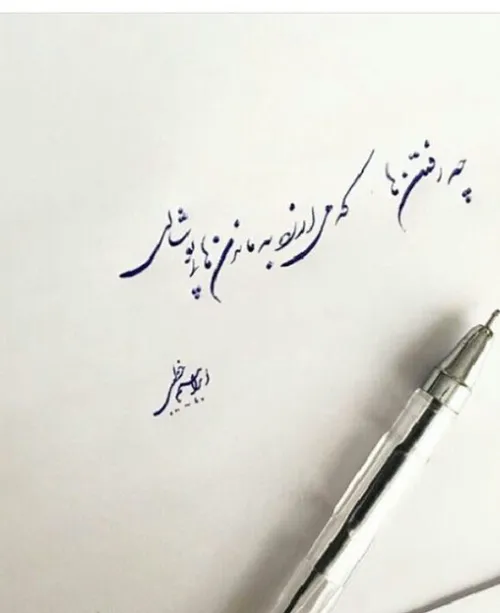 چه رفتن ها که می ارزد به ماندن های پوشالی
ابراهیم خطیبی